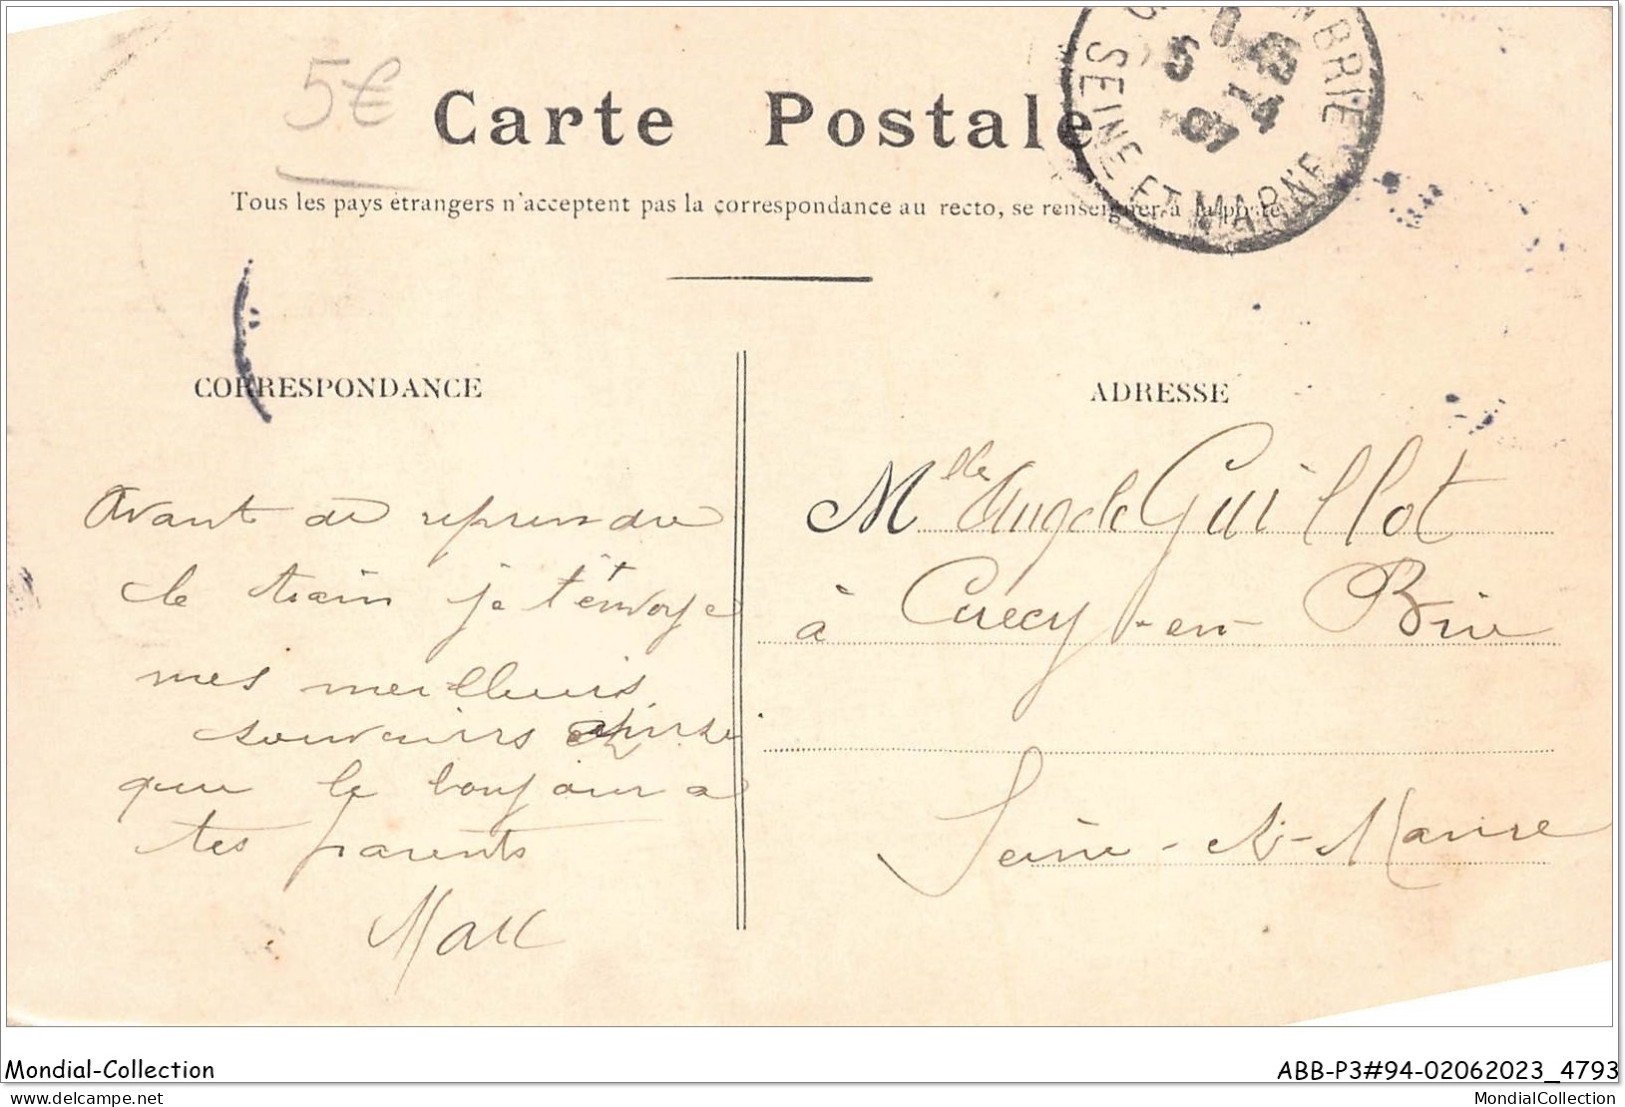 5€
Carte Postale
Tous les pays étrangers n'acceptent pas la correspondance au recto, se renseigner à la poste
BRIE
SEINE ET MARNE
5
07
CORRESPONDANCE
ADRESSE
Avant de reprendre
le train je t'envoye
mes meilleurs
souvenirs ainsi
que le bonjour a
tes parents
Max
Mlle Angele Guillot
à Crecy-en-Brie
Seine-et-Marne
Mondial-Collection
ABB-P3#94-02062023_4793
delcampe.net
MondialCollection